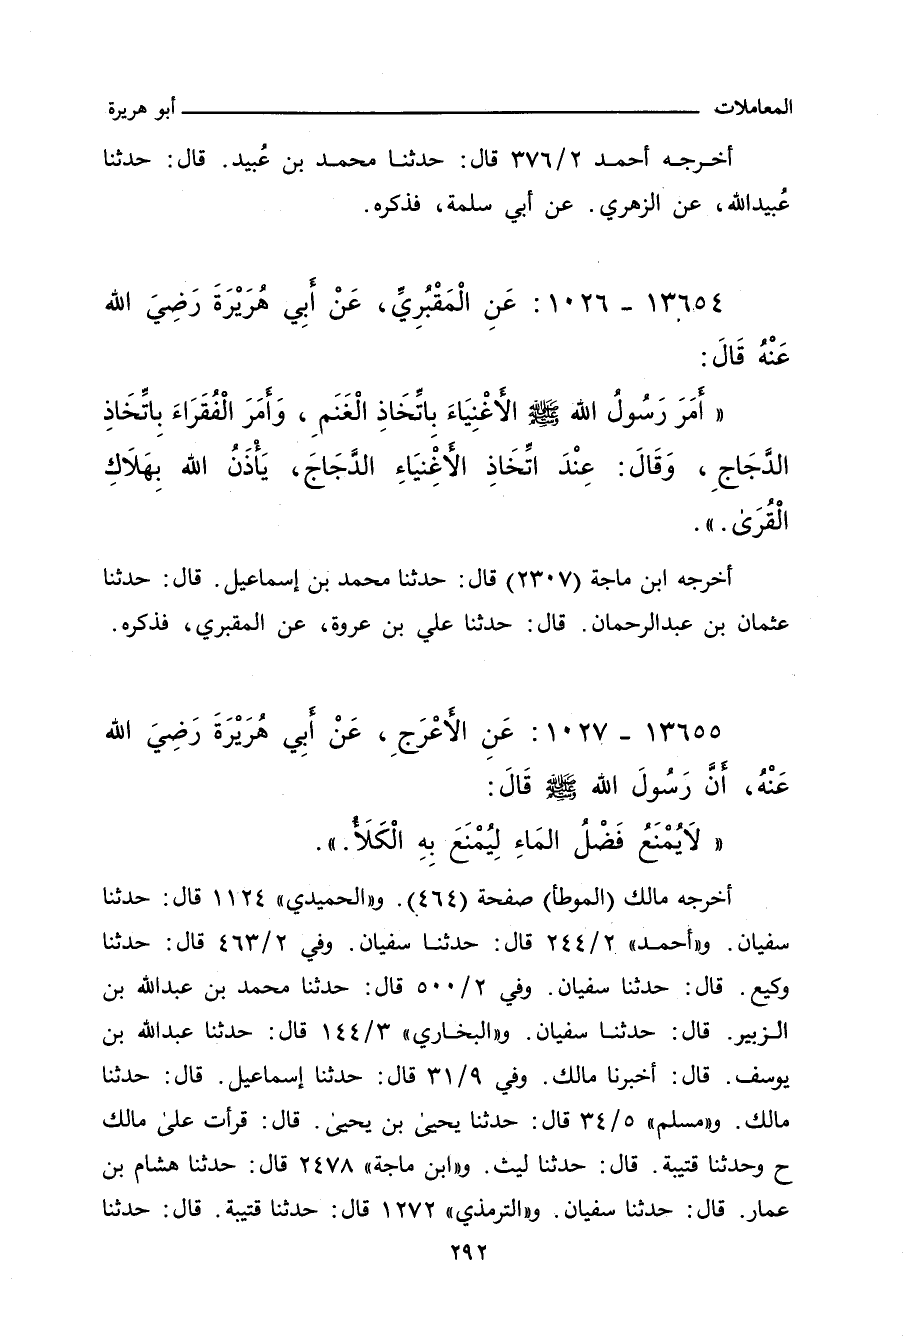 المعاملات ــــــــــــــــــــــــــــــــ أبو هريرة
أخرجه أحمد ٣٧٦/٢ قال: حدثنا محمد بن عُبيد. قال: حدثنا
عُبيدالله، عن الزهري. عن أبي سلمة، فذكره.
١٣٦٥٤ - ١٠٢٦: عَنِ الْمَقْبُرِيِّ، عَنْ أَبِي هُرَيْرَةَ رَضِيَ الله
عَنْهُ قَالَ:
« أَمَرَ رَسُولُ الله ﷺ الأَغْنِيَاءَ بِاتِّخَاذِ الْغَنَمِ، وَأَمَرَ الْفُقَرَاءَ بِاتِّخَاذِ
الدَّجَاجِ، وَقَالَ: عِنْدَ اتِّخَاذِ الأَغْنِيَاءِ الدَّجَاجَ، يَأْذَنُ الله بِهَلَاكِ
الْقُرَىٰ.».
أخرجه ابن ماجة (٢٣٠٧) قال: حدثنا محمد بن إسماعيل. قال: حدثنا
عثمان بن عبدالرحمان. قال: حدثنا علي بن عروة، عن المقبري، فذكره.
١٣٦٥٥ - ١٠٢٧: عَنِ الأَعْرَجِ، عَنْ أَبِي هُرَيْرَةَ رَضِيَ الله
عَنْهُ، أَنَّ رَسُولَ الله ﷺ قَالَ:
« لَايُمْنَعُ فَضْلُ المَاءِ لِيُمْنَعَ بِهِ الْكَلَأُ.».
أخرجه مالك (الموطأ) صفحة (٤٦٤). و«الحميدي» ١١٢٤ قال: حدثنا
سفيان. و«أحمد» ٢٤٤/٢ قال: حدثنا سفيان. وفي ٤٦٣/٢ قال: حدثنا
وكيع. قال: حدثنا سفيان. وفي ٥٠٠/٢ قال: حدثنا محمد بن عبدالله بن
الزبير. قال: حدثنا سفيان. و«البخاري» ١٤٤/٣ قال: حدثنا عبدالله بن
يوسف. قال: أخبرنا مالك. وفي ٣١/٩ قال: حدثنا إسماعيل. قال: حدثنا
مالك. و«مسلم» ٣٤/٥ قال: حدثنا يحيىٰ بن يحيىٰ. قال: قرأت علىٰ مالك
ح وحدثنا قتيبة. قال: حدثنا ليث. و«ابن ماجة» ٢٤٧٨ قال: حدثنا هشام بن
عمار. قال: حدثنا سفيان. و«الترمذي» ١٢٧٢ قال: حدثنا قتيبة. قال: حدثنا
٢٩٢